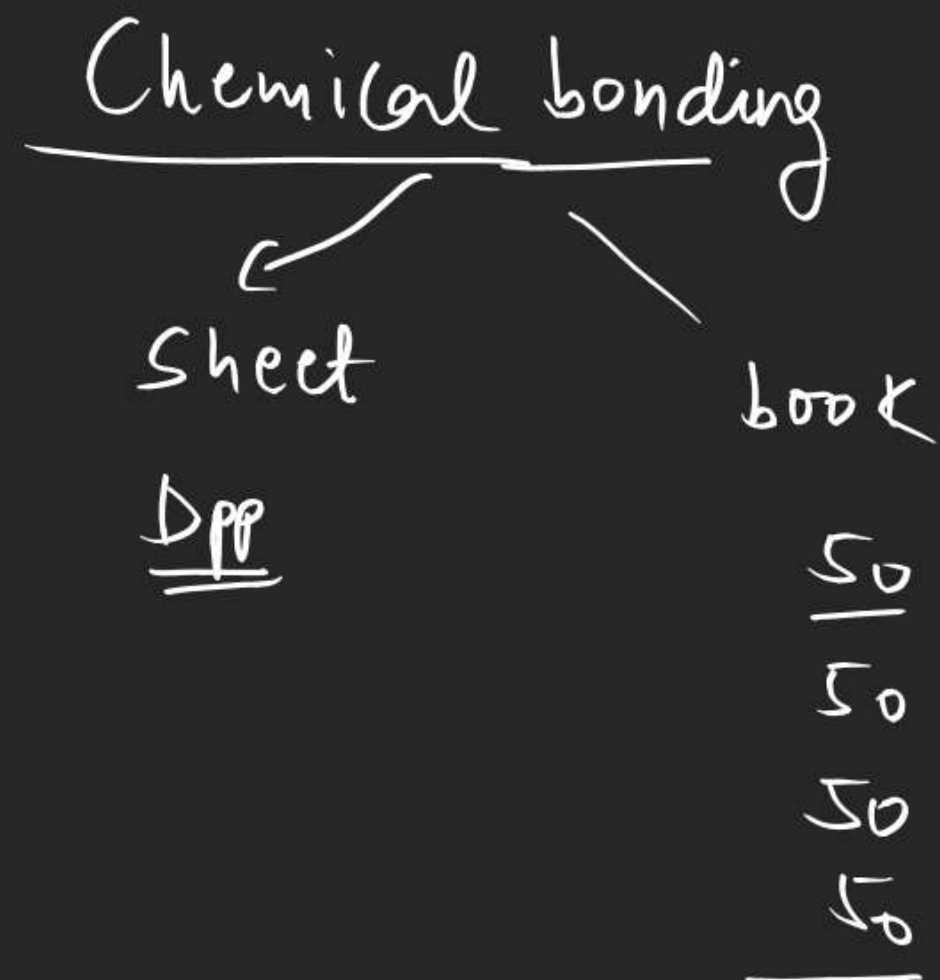 Chemical bonding
Sheet
book
Dpp
50
50
50
50